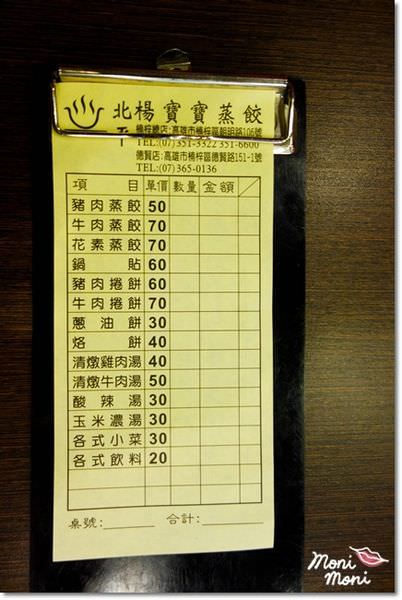 北楊寶寶蒸餃
楠梓總店:高雄市楠梓區朝明路106號
TEL:(07)351-3322 351-6600
德賢店:高雄市楠梓區德賢路151-1號
TEL:(07)365-0136
項目 單價 數量 金額
豬肉蒸餃 50
牛肉蒸餃 70
花素蒸餃 70
鍋貼 60
豬肉捲餅 60
牛肉捲餅 70
蔥油餅 30
烙餅 40
清燉雞肉湯 40
清燉牛肉湯 50
酸辣湯 30
玉米濃湯 30
各式小菜 30
各式飲料 20
桌號:______ 合計:______
Moni
Moni